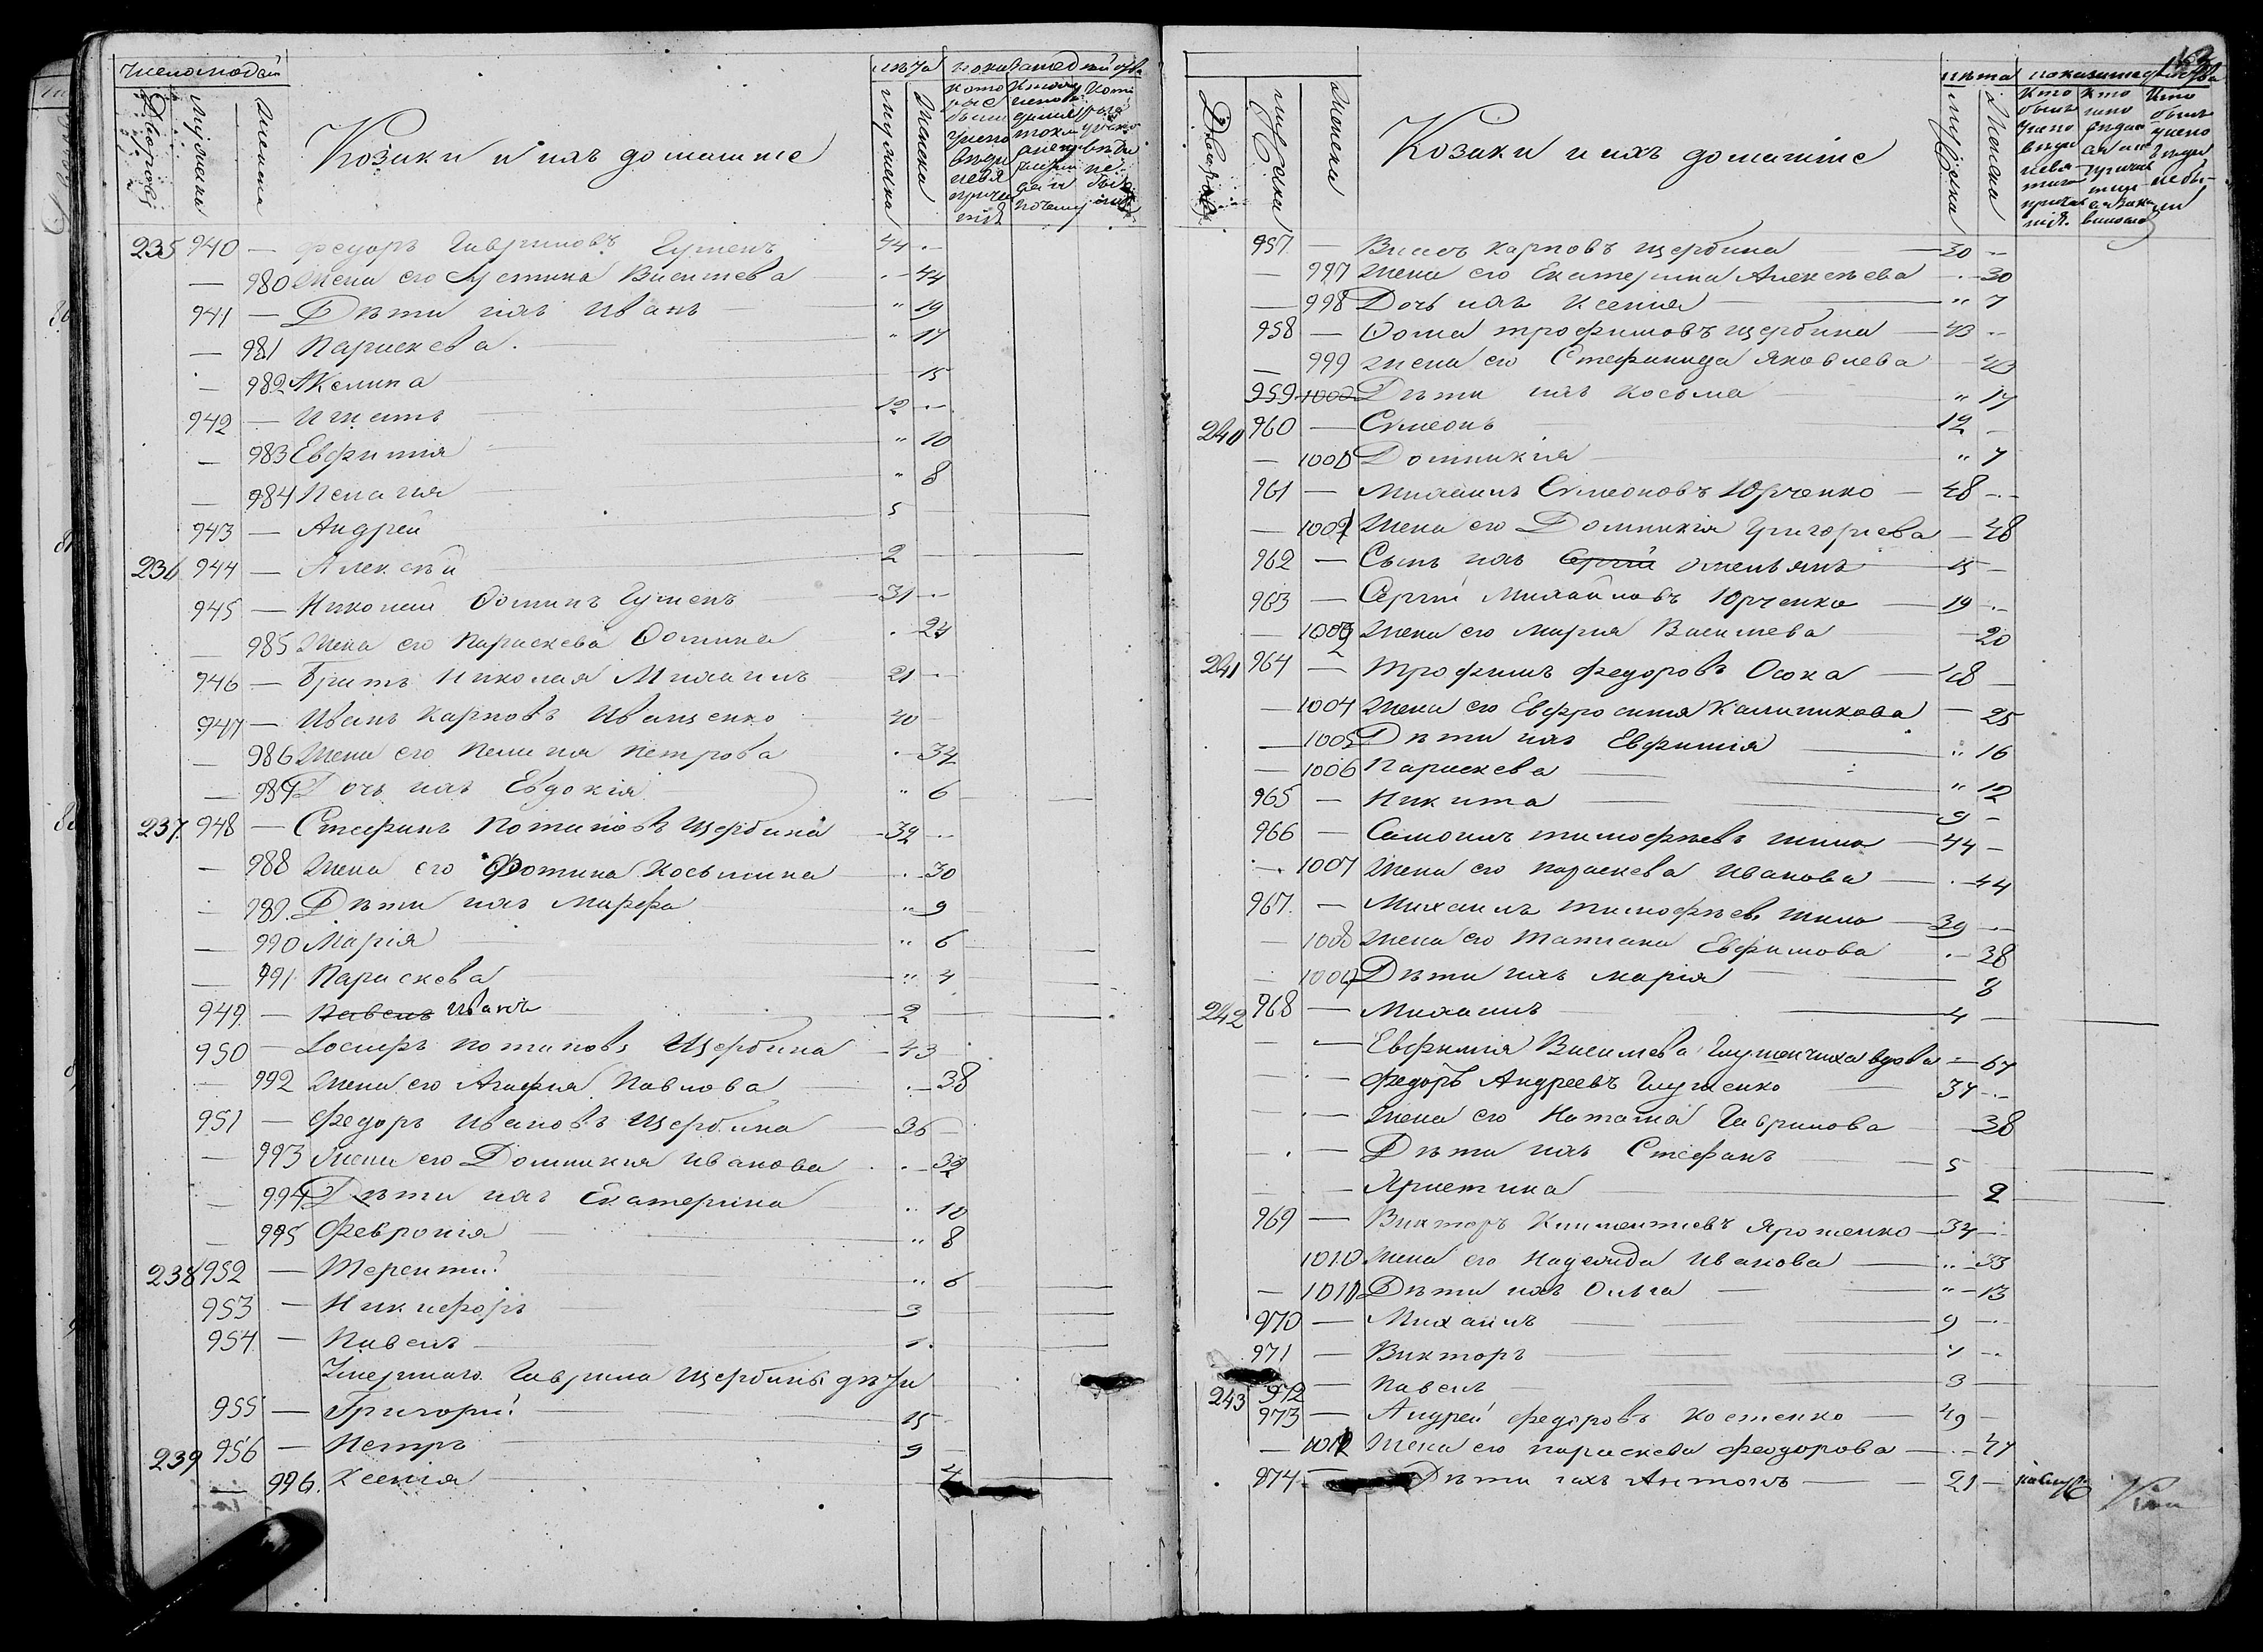 Число людей
Дворовъ
Мужеска
Женска
Козаки и ихъ домашніе
лѣта
Мужеска
Женска
235 940 — Федоръ Гавриловъ Гуженъ 44 —
— 980 Жена его Устина Васильева — 44
941 — Дѣти ихъ Иванъ " 19
— 981 Параскева " 17
— 982 Акелина 15
942 — Игнатъ 12 —
— 983 Евфимія " 10
— 984 Пелагія " 8
943 — Андрей 5
236 944 — Алексѣй 2
945 — Николай Фоминъ Гуженъ 31 —
— 985 Жена его Параскева Фомина 24
946 — Братъ Николая Михаилъ 21 —
947 — Иванъ Карповъ Иващенко 40
— 986 Жена его Пелагія Петрова — 34
— 987 Дочь ихъ Евдокія " 6
237 948 — Стефанъ Потаповъ Щербина 32 —
— 988 Жена его Фотина Косьмина — 30
— 989 Дѣти ихъ Марфа " 9
— 990 Марія " 6
— 991 Параскева " 4
949 — Павелъ Иванъ 2
950 — Іосифъ Потаповъ Щербина 43
— 992 Жена его Агафія Павлова — 38
951 — Федоръ Ивановъ Щербина 36
— 993 Жена его Домникія Иванова — 32
— 994 Дѣти ихъ Екатерина " 10
— 995 Февронія " 8
238 952 — Терентій " 6
953 — Никифоръ 3
954 — Павелъ 1
Умершаго Гаврила Щербины дѣти
955 — Григорій 15
239 956 — Петръ 9
— 996 Ксенія 4
163
Дворовъ
Мужеска
Женска
Козаки и ихъ домашніе
лѣта
Мужеска
Женска
957 — Власъ Карповъ Щербина 30 —
— 997 Жена его Екатерина Алексѣева — 30
— 998 Дочь ихъ Ксенія " 7
958 — Фома Трофимовъ Щербина 43 —
— 999 Жена его Стефанида Яковлева — 43
959 1000 Дѣти ихъ Косьма " 17
240 960 — Симеонъ 12 —
— 1000 Домникія " 7
961 — Михаилъ Симеоновъ Юрченко 48 —
— 1001 Жена его Домникія Григорьева — 48
962 — Сынъ ихъ Сергій Омельянъ 15 —
963 — Сергій Михайловъ Юрченко 19 —
— 1002 Жена его Марія Васильева 20
241 964 — Трофимъ Федоровъ Осока 48 —
— 1004 Жена его Евфросинія Калиникова — 25
— 1005 Дѣти ихъ Евфимія " 16
— 1006 Параскева " 12
965 — Никита 9 —
966 — Самоилъ Тимофѣевъ Шило 44 —
— 1007 Жена его Параскева Иванова — 44
967 — Михаилъ Тимофѣевъ Шило 39 —
— 1008 Жена его Татіана Евфимова — 38
— 1009 Дѣти ихъ Марія 8
242 968 — Михаилъ 4 —
— — Евфимія Васильева вдова — 67
— — Федоръ Андреевъ Глущенко 34 —
— — Жена его Наталія Гаврилова 38
— — Дѣти ихъ Стефанъ 5
— Христина 2
969 — Викторъ Климентіевъ Ярошенко 34 —
1010 Жена его Надежда Иванова " 33
— 1011 Дѣти ихъ Ольга " 13
970 — Михаилъ 9 —
971 — Викторъ 7 —
243 972 — Павелъ 3
973 — Андрей Федоровъ Костенко 49 —
— 1012 Жена его Параскева Феодорова — 47
974 Дѣти ихъ Антонъ 21